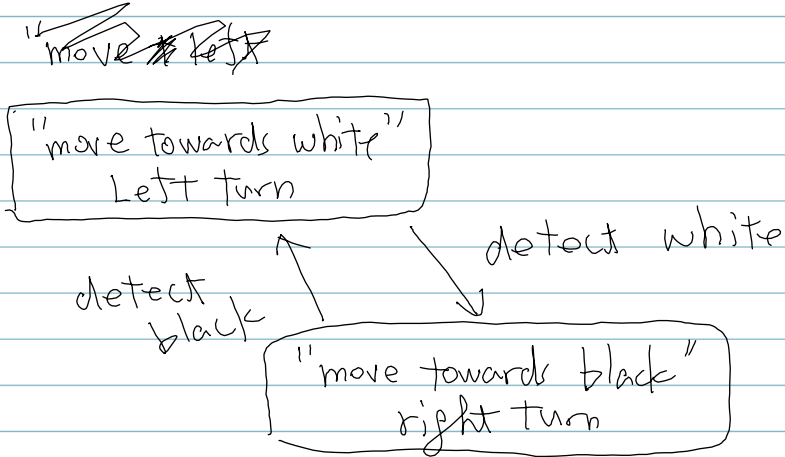 "move left
"move towards white"
Left turn
detect white
detect
black
"move towards black"
right turn